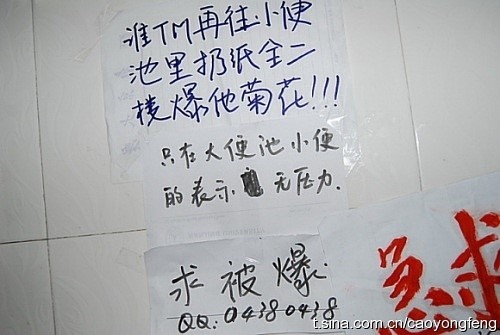 谁TM再往小便
池里扔纸全二
楼爆他菊花!!!
只在大便池小便
的表示 无压力.
求被爆.
QQ:04380438
求
t.sina.com.cn/caoyongfeng